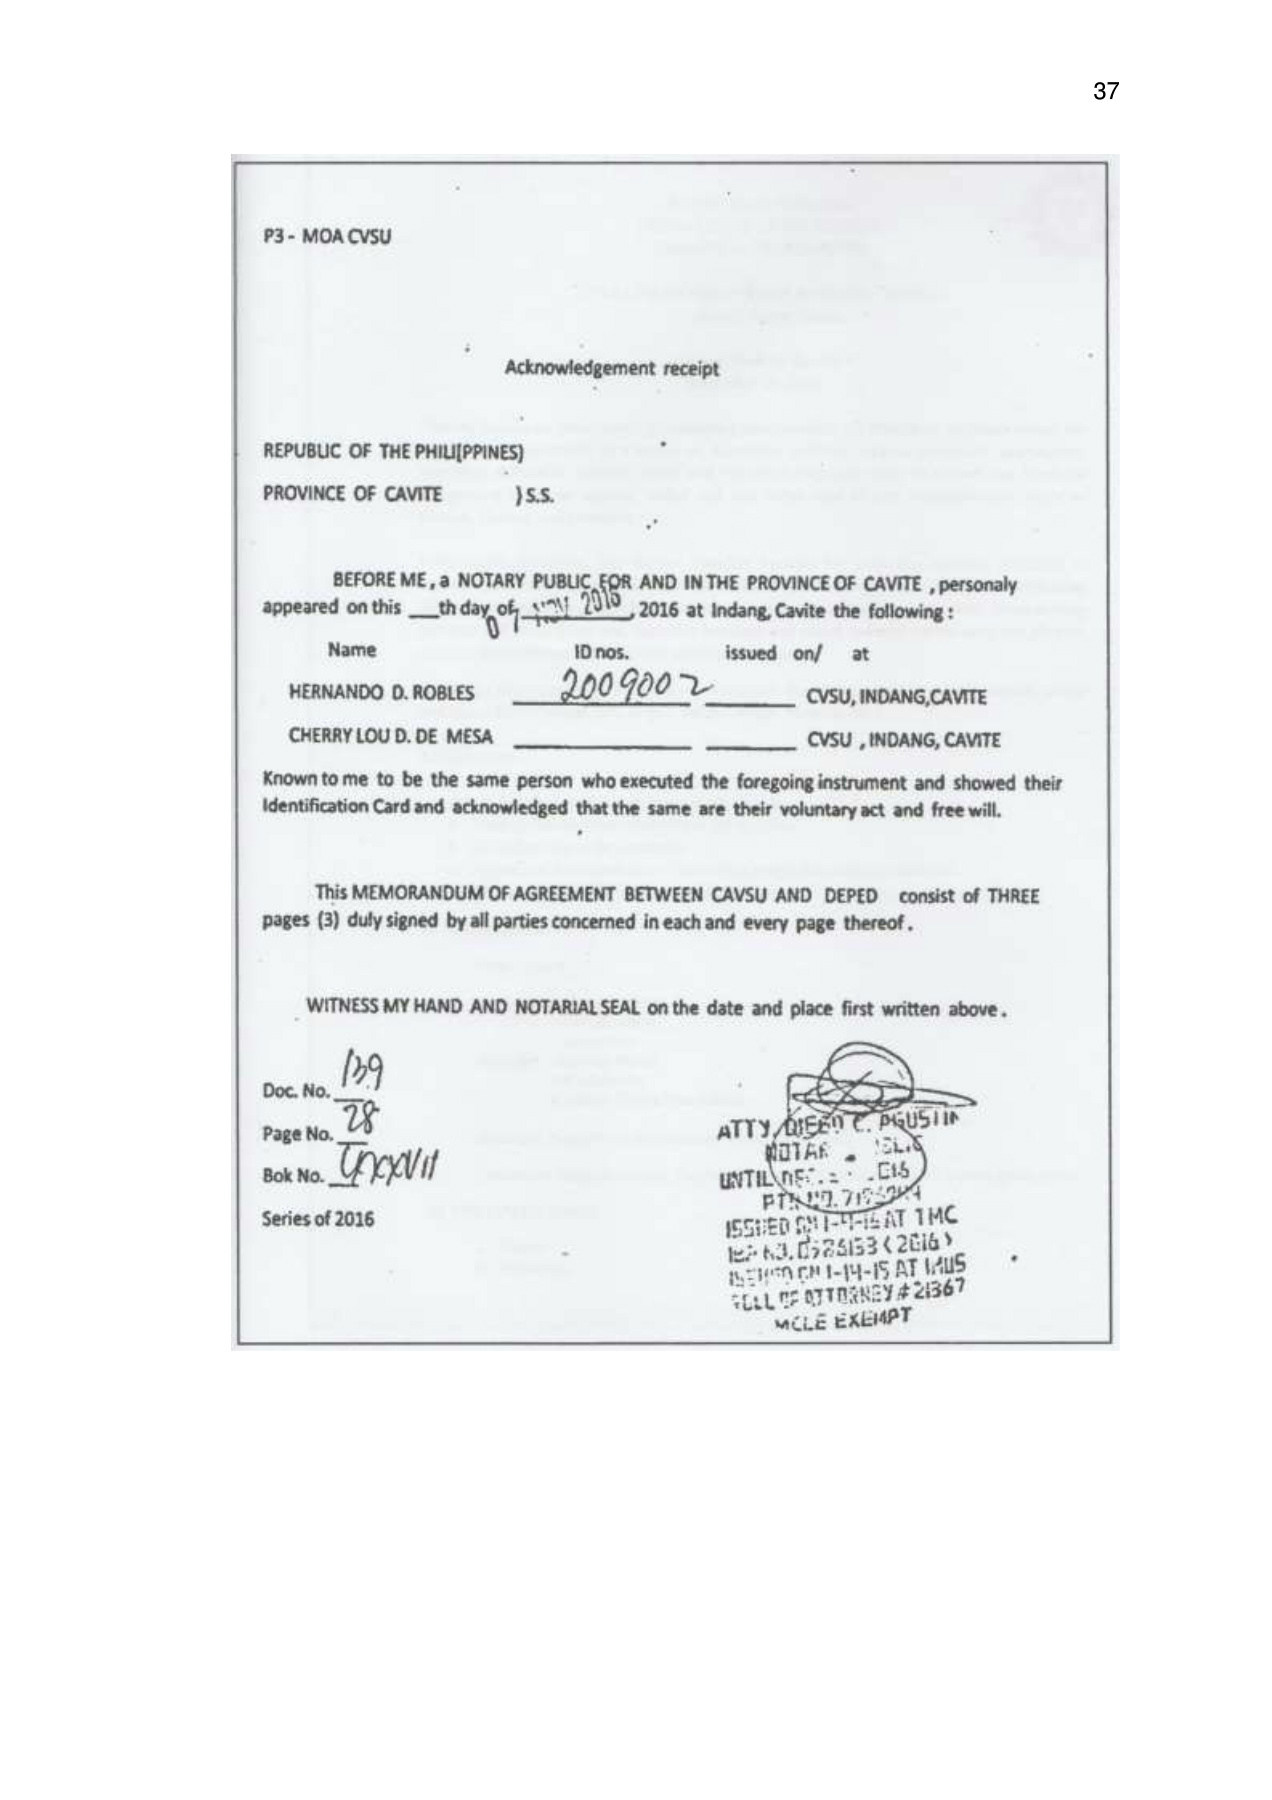 37
P3 - MOA CVSU
Acknowledgement receipt
REPUBLIC OF THE PHILI[PPINES)
PROVINCE OF CAVITE ) S.S.
BEFORE ME, a NOTARY PUBLIC FOR AND IN THE PROVINCE OF CAVITE , personaly
appeared on this __th day of 07 NOV 2016, 2016 at Indang, Cavite the following :
Name ID nos. issued on/ at
HERNANDO D. ROBLES 2009002 ______ CVSU, INDANG,CAVITE
CHERRY LOU D. DE MESA ____________ ______ CVSU , INDANG, CAVITE
Known to me to be the same person who executed the foregoing instrument and showed their
Identification Card and acknowledged that the same are their voluntary act and free will.
This MEMORANDUM OF AGREEMENT BETWEEN CAVSU AND DEPED consist of THREE
pages (3) duly signed by all parties concerned in each and every page thereof .
WITNESS MY HAND AND NOTARIAL SEAL on the date and place first written above .
Doc. No. 139
Page No. 28
Bok No.
Series of 2016
ATTY. C. AGUSTIN
UNTIL
ISSUED AT TMC
(2016)
1-14-15 AT IMUS
OF ATTORNEY # 21367
MCLE EXEMPT